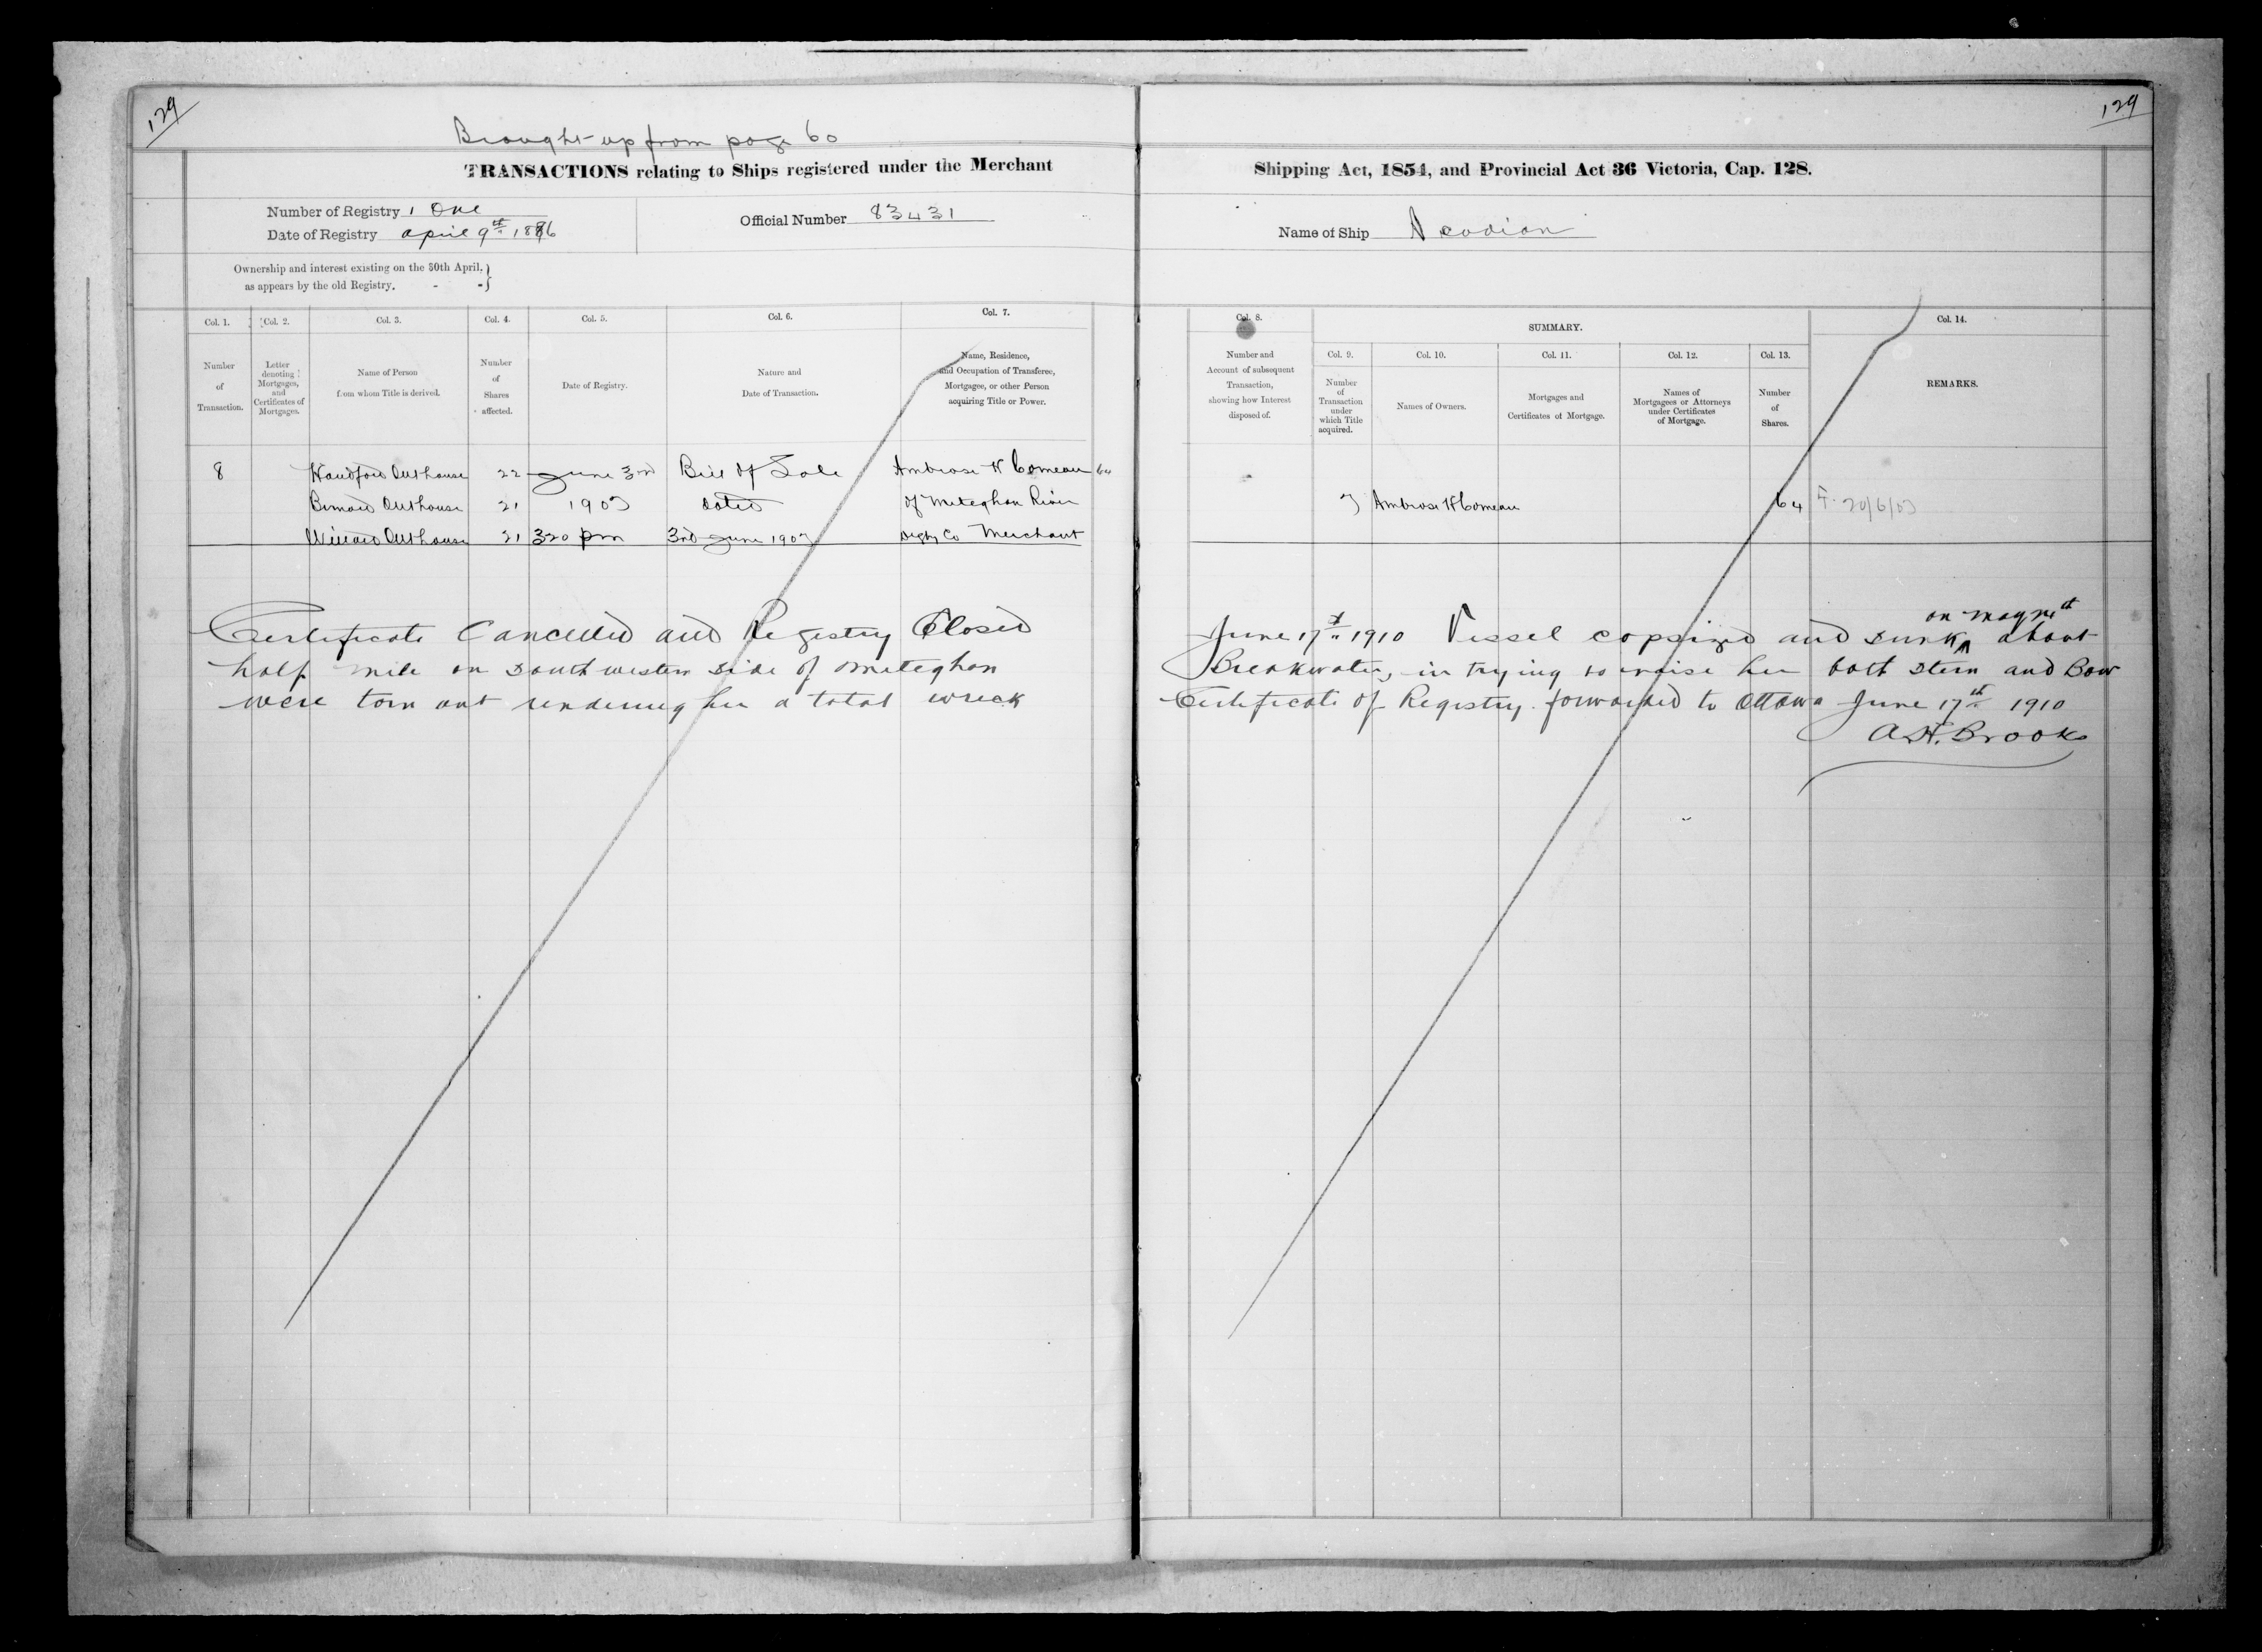 129
129
Brought up from page 60
TRANSACTIONS relating to Ships registered under the Merchant Shipping Act, 1854, and Provincial Act 36 Victoria, Cap. 128.
Number of Registry 1 One
Date of Registry April 9th 1886
Official Number 83431
Name of Ship Acadian
Ownership and interest existing on the 30th April,
as appears by the old Registry.
Col. 1. Col. 2. Col. 3. Col. 4. Col. 5. Col. 6. Col. 7. Col. 8. SUMMARY. Col. 14.
Number of Transaction.
Letter denoting Mortgages, and Certificates of Mortgages.
Name of Person from whom Title is derived.
Number of Shares affected.
Date of Registry.
Nature and Date of Transaction.
Name, Residence, and Occupation of Transferee, Mortgagee, or other Person acquiring Title or Power.
Number and Account of subsequent Transaction, showing how Interest disposed of.
Col. 9. Col. 10. Col. 11. Col. 12. Col. 13.
Number of Transaction under which Title acquired.
Names of Owners.
Mortgages and Certificates of Mortgage.
Names of Mortgagees or Attorneys under Certificates of Mortgage.
Number of Shares.
REMARKS.
8 Handford Outhouse 22 June 3rd Bill of Sale Ambrose H Comeau 64
Bernard Outhouse 21 1903 dated of Meteghan River 7 Ambrose H Comeau 64 F. 20/6/03
Willard Outhouse 21 320 pm 3rd June 1903 Digby Co Merchant
Certificate Cancelled and Registry Closed June 17th 1910 Vessel capsized and sunk on May 11th about
half mile on Southwestern side of Meteghan Breakwater, in trying to raise her both Stern and Bow
were torn out rendering her a total wreck Certificate of Registry forwarded to Ottawa June 17th 1910
A.H. Brooks